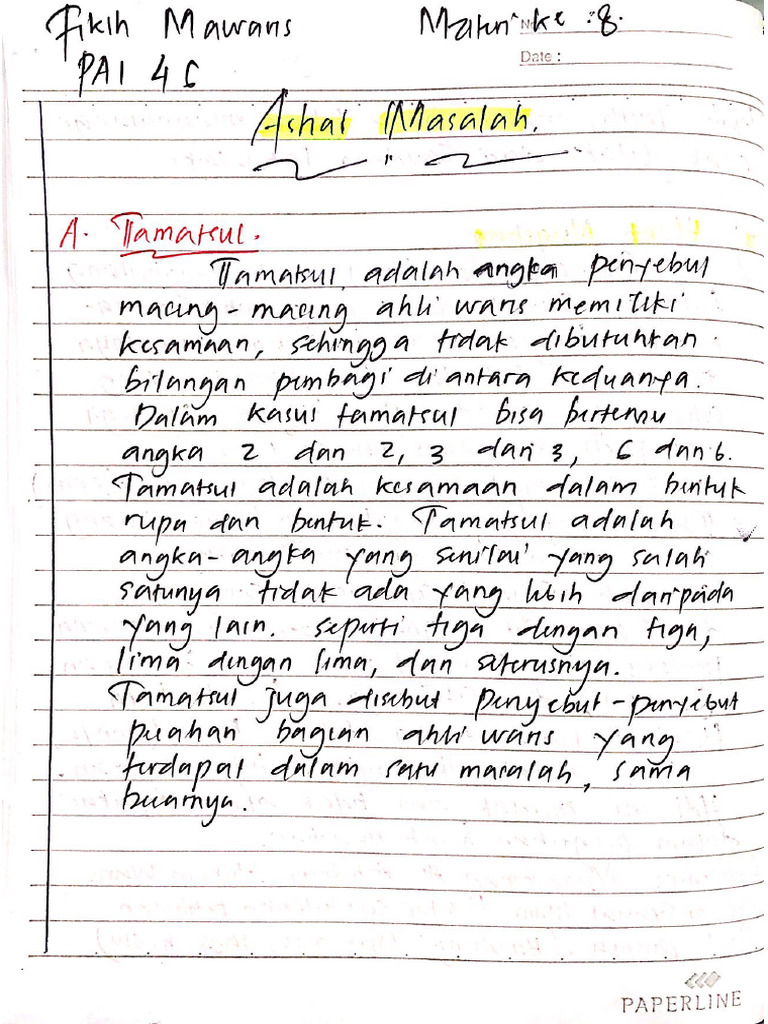 Fikih Mawaris
Materi ke : 8.
No :
PAI 4 C
Date :
Ashal Masalah.
A. Tamatsul.
Tamatsul adalah angka penyebut
macing-macing ahli waris memiliki
kesamaan, sehingga tidak dibutuhkan
bilangan pembagi di antara keduanya.
Dalam kasus tamatsul bisa bertemu
angka 2 dan 2, 3 dan 3, 6 dan 6.
Tamatsul adalah kesamaan dalam bentuk
rupa dan bentuk. Tamatsul adalah
angka-angka yang senilai yang salah
satunya tidak ada yang lebih daripada
yang lain. seperti tiga dengan tiga,
lima dengan lima, dan seterusnya.
Tamatsul juga disebut penyebut-penyebut
pecahan bagian ahli waris yang
terdapat dalam satu masalah, sama
besarnya.
PAPERLINE